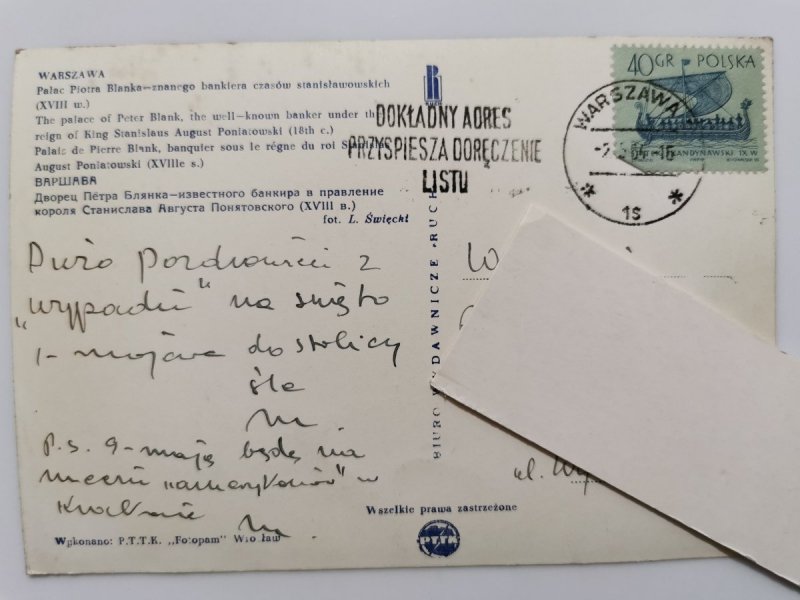 WARSZAWA
Pałac Piotra Blanka—znanego bankiera czasów stanisławowskich
(XVIII w.)
The palace of Peter Blank, the well-known banker under the
reign of King Stanislaus August Poniatowski (18th c.)
Palais de Pierre Blank, banquier sous le régne du roi Stanislas
August Poniatowski (XVIIIe s.)
ВАРШАВА
Дворец Пётра Блянка—известного банкира в правление
короля Станислава Августа Понятовского (XVIII в.)
fot. L. Święcki
Dużo pozdrowień z
„wypadu" na święto
1-majowe do stolicy
śle
M.
p.s. 9-maja będę na
meczu „amerykanów" w
Krakowie M
Wykonano: P.T.T.K. „Fotopam" Wrocław
RUCH
BIURO WYDAWNICZE „RUCH
Wszelkie prawa zastrzeżone
DOKŁADNY ADRES
PRZYSPIESZA DORĘCZENIE
LISTU
WARSZAWA
1s
40GR POLSKA
IX W
ul.